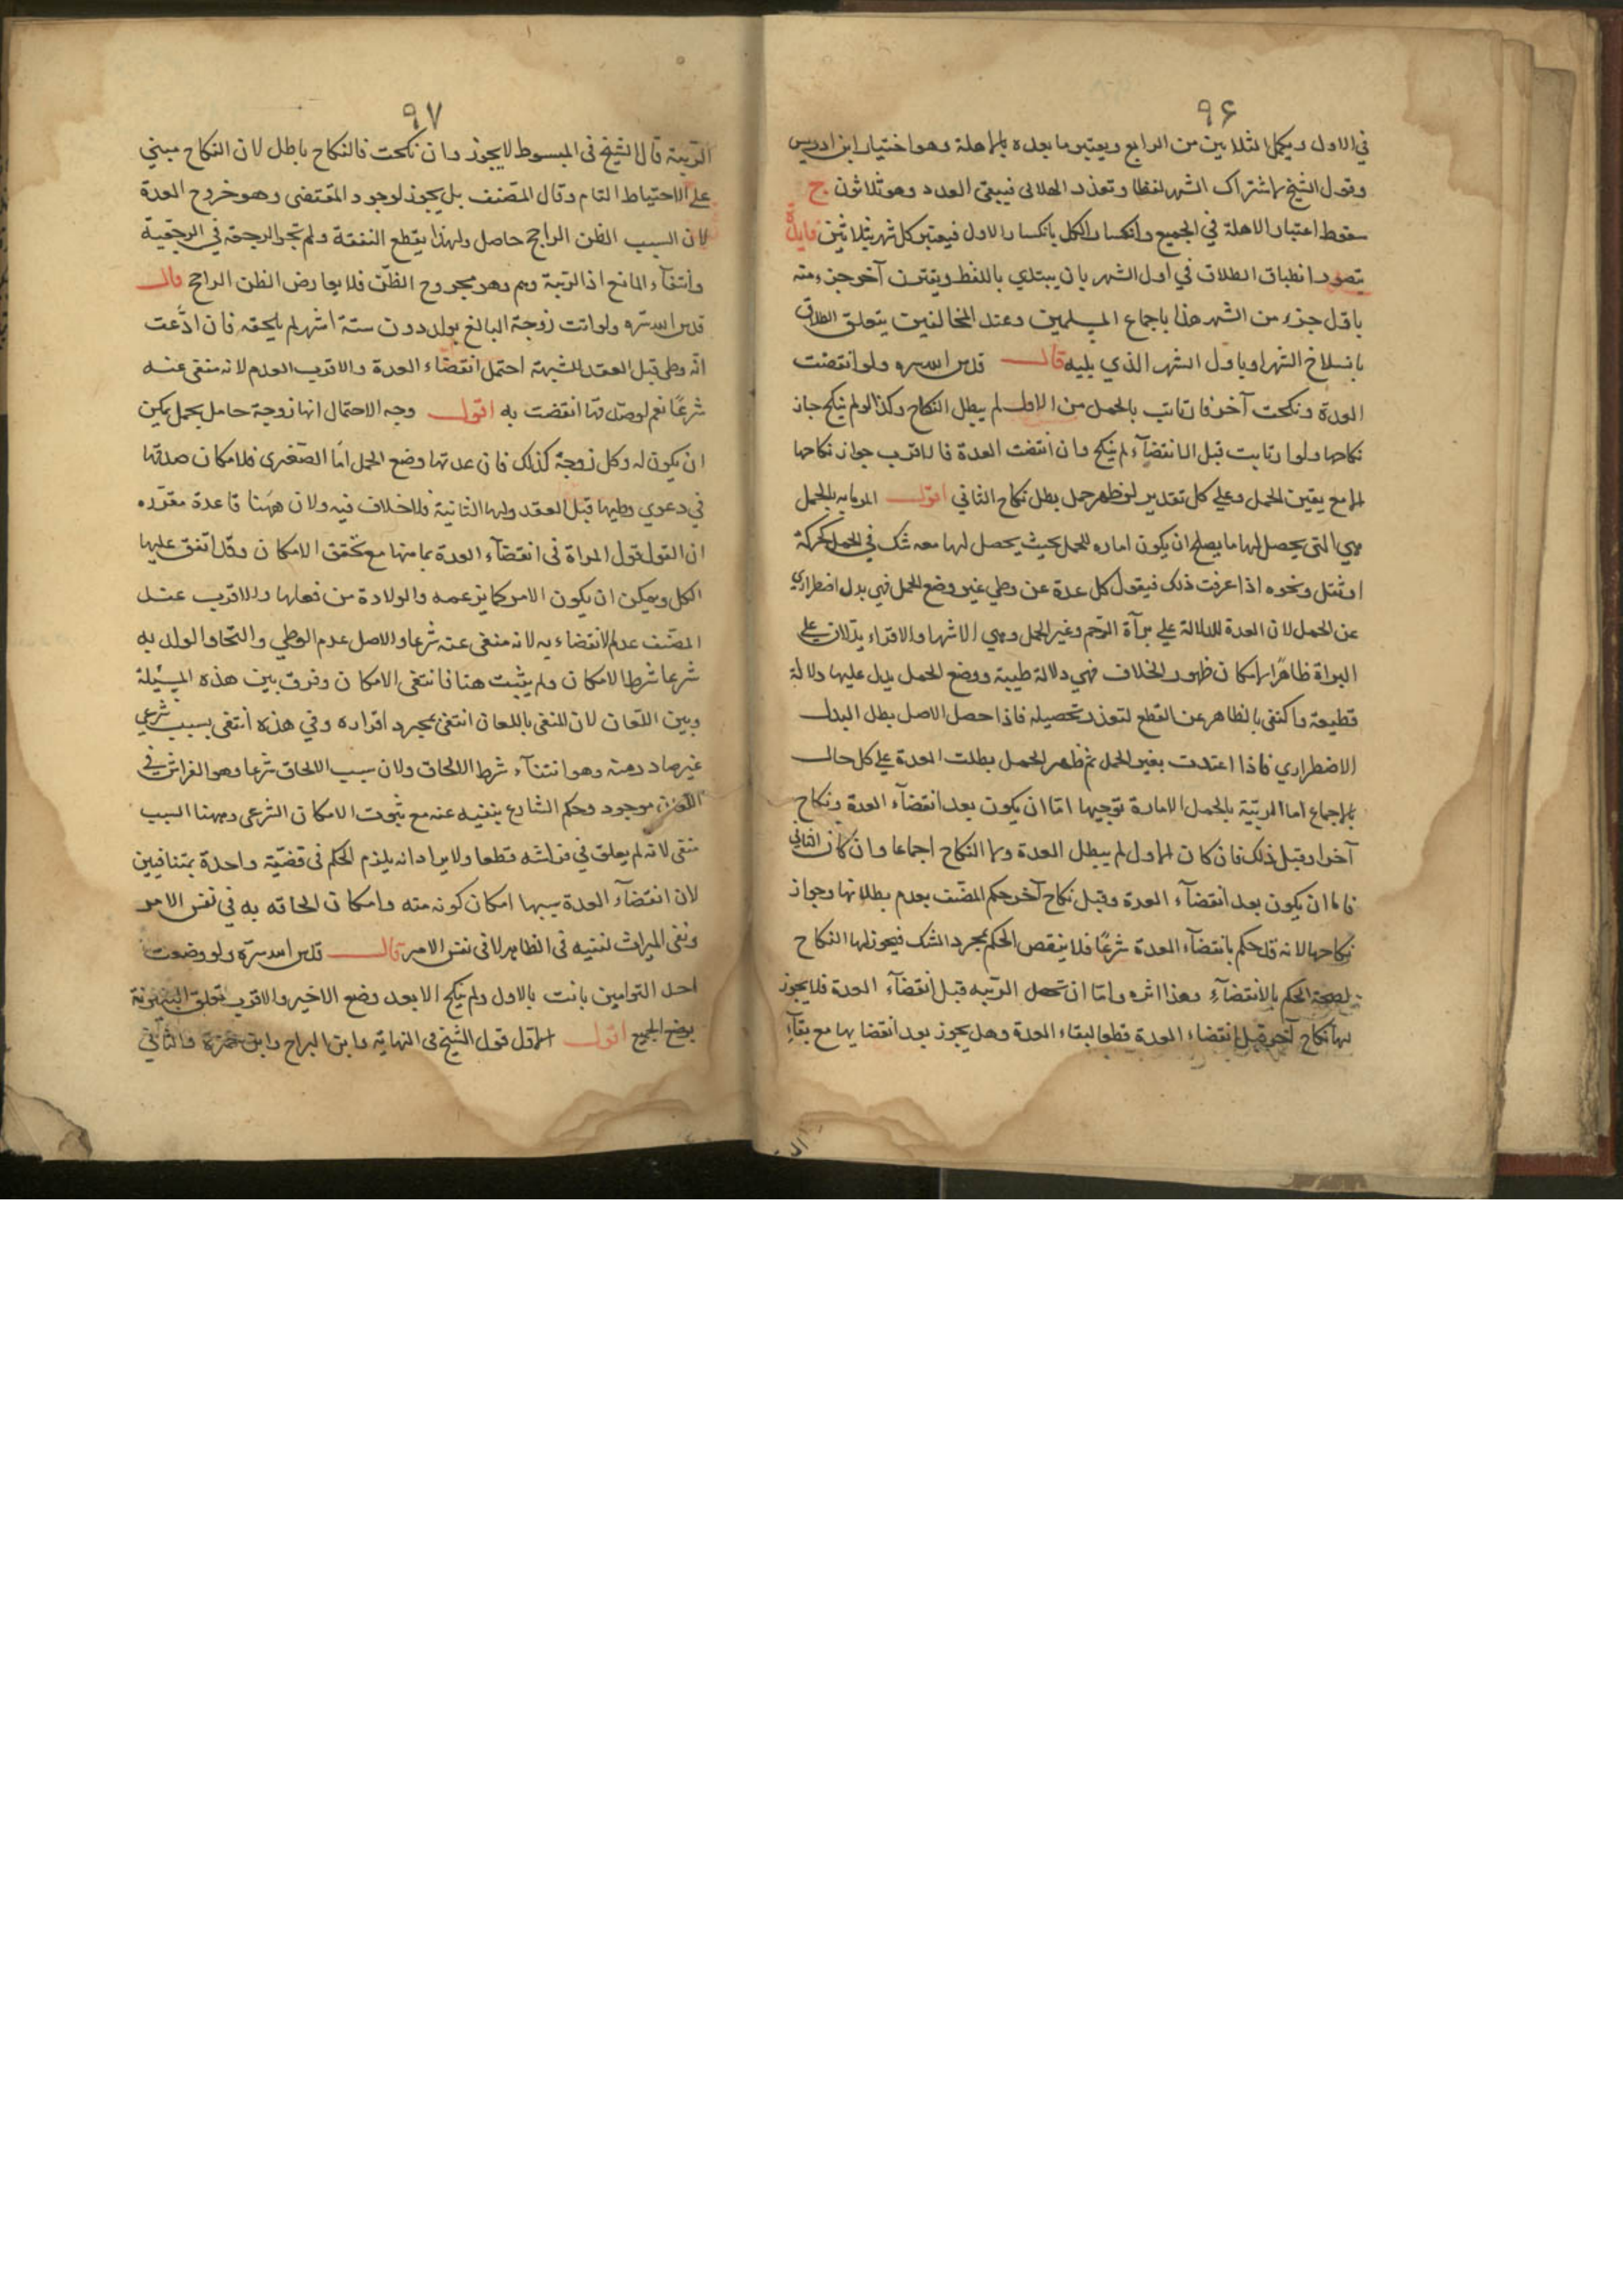 ٩۶
في الاول ويكمل ثلاثين من الرابع ويعتبر ما بعده بالاهلة وهو اختيار ابن ادريس
وقول الشيخ باشتراك الشهر لفظا وتعذر الهلالى فيبقى العدد وهو ثلاثون ج
سقوط اعتبار الاهلة في الجميع وانكسار الكل بانكسار الاول فيعتبر كل شهر بثلاثين فايدة
يتصور انطباق الطلاق في اول الشهر بان يبتدي باللفظ ويقترن آخر جزء منه
باول جزء من الشهر هذا باجماع المسلمين وعند المخالفين يتعلق الطلاق
بانسلاخ الشهر او باول الشهر الذي يليه قال قدس الله سره ولو انقضت
العدة ونكحت آخر فارتابت بالحمل من الاول لم يبطل النكاح وكذا لو لم تنكح جاز
نكاحها ولو ارتابت قبل الانقضآء لم تنكح وان انقضت العدة فالاقرب جواز نكاحها
الا مع يقين الحمل وعلى كل تقدير لو ظهر حمل بطل نكاح الثاني اقول المرتابه بالحمل
هي التى يحصل لها ما يصلح ان يكون اماره للحمل بحيث يحصل لها معه شك في الحمل كحركة
او ثقل ونحوه اذا عرفت ذلك فيقول كل عدة عن وطي غير وضع الحمل فهي بدل اضطراري
عن الحمل لان العدة للدلالة على برآة الرحم وغير الحمل وهي الاشهر والاقراء يدلان على
البراة ظاهرا بامكان ظهور الخلاف فهي دلالة ظنية ووضع الحمل يدل عليها دلالة
قطيعة واكتفى بالظاهر عن القطع لتعذر تحصيله فاذا حصل الاصل بطل البدل
الاضطراري فاذا اعتدت بغير الحمل ثم ظهر الحمل بطلت العدة على كل حال
بالاجماع اما المرتبة بالحمل الامارة توجبها اما ان يكون بعد انقضآء العدة ونكاح
آخر او قبل ذلك فان كان الاول لم يبطل العدة ولا النكاح اجماعا وان كان الثاني
فاما ان يكون بعد انقضآء العدة وقبل نكاح آخر حكم المصنف بعدم بطلانها وجواز
نكاحها لانه قد حكم بانقضآء العدة شرعًا فلا ينقص الحكم بمجرد الشك فيجوز لها النكاح
لصحة الحكم بالانقضآء وهذا اثره واما ان تحصل الريبه قبل انقضآء العدة فلا يجوز
لها نكاح آخر قبل انقضاء العدة قطعا لبقاء العدة وهل يجوز بعد انقضايها مع بقآء
٩٧
الريبة قال الشيخ فى المبسوط لا يجوز وان نكحت فالنكاح باطل لان النكاح مبني
على الاحتياط التام وقال المصنف بل يجوز لوجود المقتضى وهو خروج العدة
لان السبب الظن الراجح حاصل ولهذا يقطع النفقة ولم تجز الرجعة في الرجعية
وانتفآء المانع اذ الريبة وهم وهو مجروح الظن فلا يعارض الظن الراجح قال
قدس الله سره ولو اتت زوجة البالغ بولد دون ستة اشهر لم يلحقه فان ادّعت
انّه وطى قبل العقد للشبهة احتمل انقضاء العدة والاقرب العدم لانه منفى عنه
شرعًا نعم لو صدّقها انقضت به اقول وجه الاحتمال انها زوجة حامل بحمل يمكن
ان يكون له وكل زوجة كذلك فان عدتها وضع الحمل امّا الصّغرى فلامكان صدقها
في دعوي وطيها قبل العقد ولها الثانية فلا خلاف فيه ولان ههنا قاعدة مقرّره
ان القول قول المراة فى انقضآء العدة بما منها مع تحقق الامكان وقد اتفق عليها
الكل ويمكن ان يكون الامر كما تزعمه والولادة من فعلها والاقرب عند
المصنف عدم الانقضاء به لانه منفى عنه شرعا والاصل عدم الوطي والتحاق الولد به
شرعا شرط الامكان ولم يثبت هنا فانتفى الامكان وفرق بين هذه المسئلة
وبين اللعان لان المنفى باللعان انتفى بمجرد اقراره وفي هذه انتفى بسبب شرعي
غير صادر منه وهو انتفآء شرط الالحاق ولان سبب الالحاق شرعا وهو الفراش في
اللعان موجود وحكم الشارع بنفيه عنه مع ثبوت الامكان الشرعى وههنا السبب
منتفى لانه لم يعلق في فراشه قطعا ولا يراد انه يلزم الحكم فى قضية واحدة بمتنافيين
لان انقضآء العدة سببها امكان كونه منه وامكان الحاقه به في نفس الامر
ونفى الميراث لنفيه فى الظاهر لا فى نفس الامر قال قدس الله سرّه ولو وضعت
احد التوامين بانت بالاول ولم تنكح الا بعد وضع الاخير والاقرب تعلق البينونة
بوضع الجميع اقول الاول قول الشيخ فى النهاية وابن البراج وابن حمزة والثاني